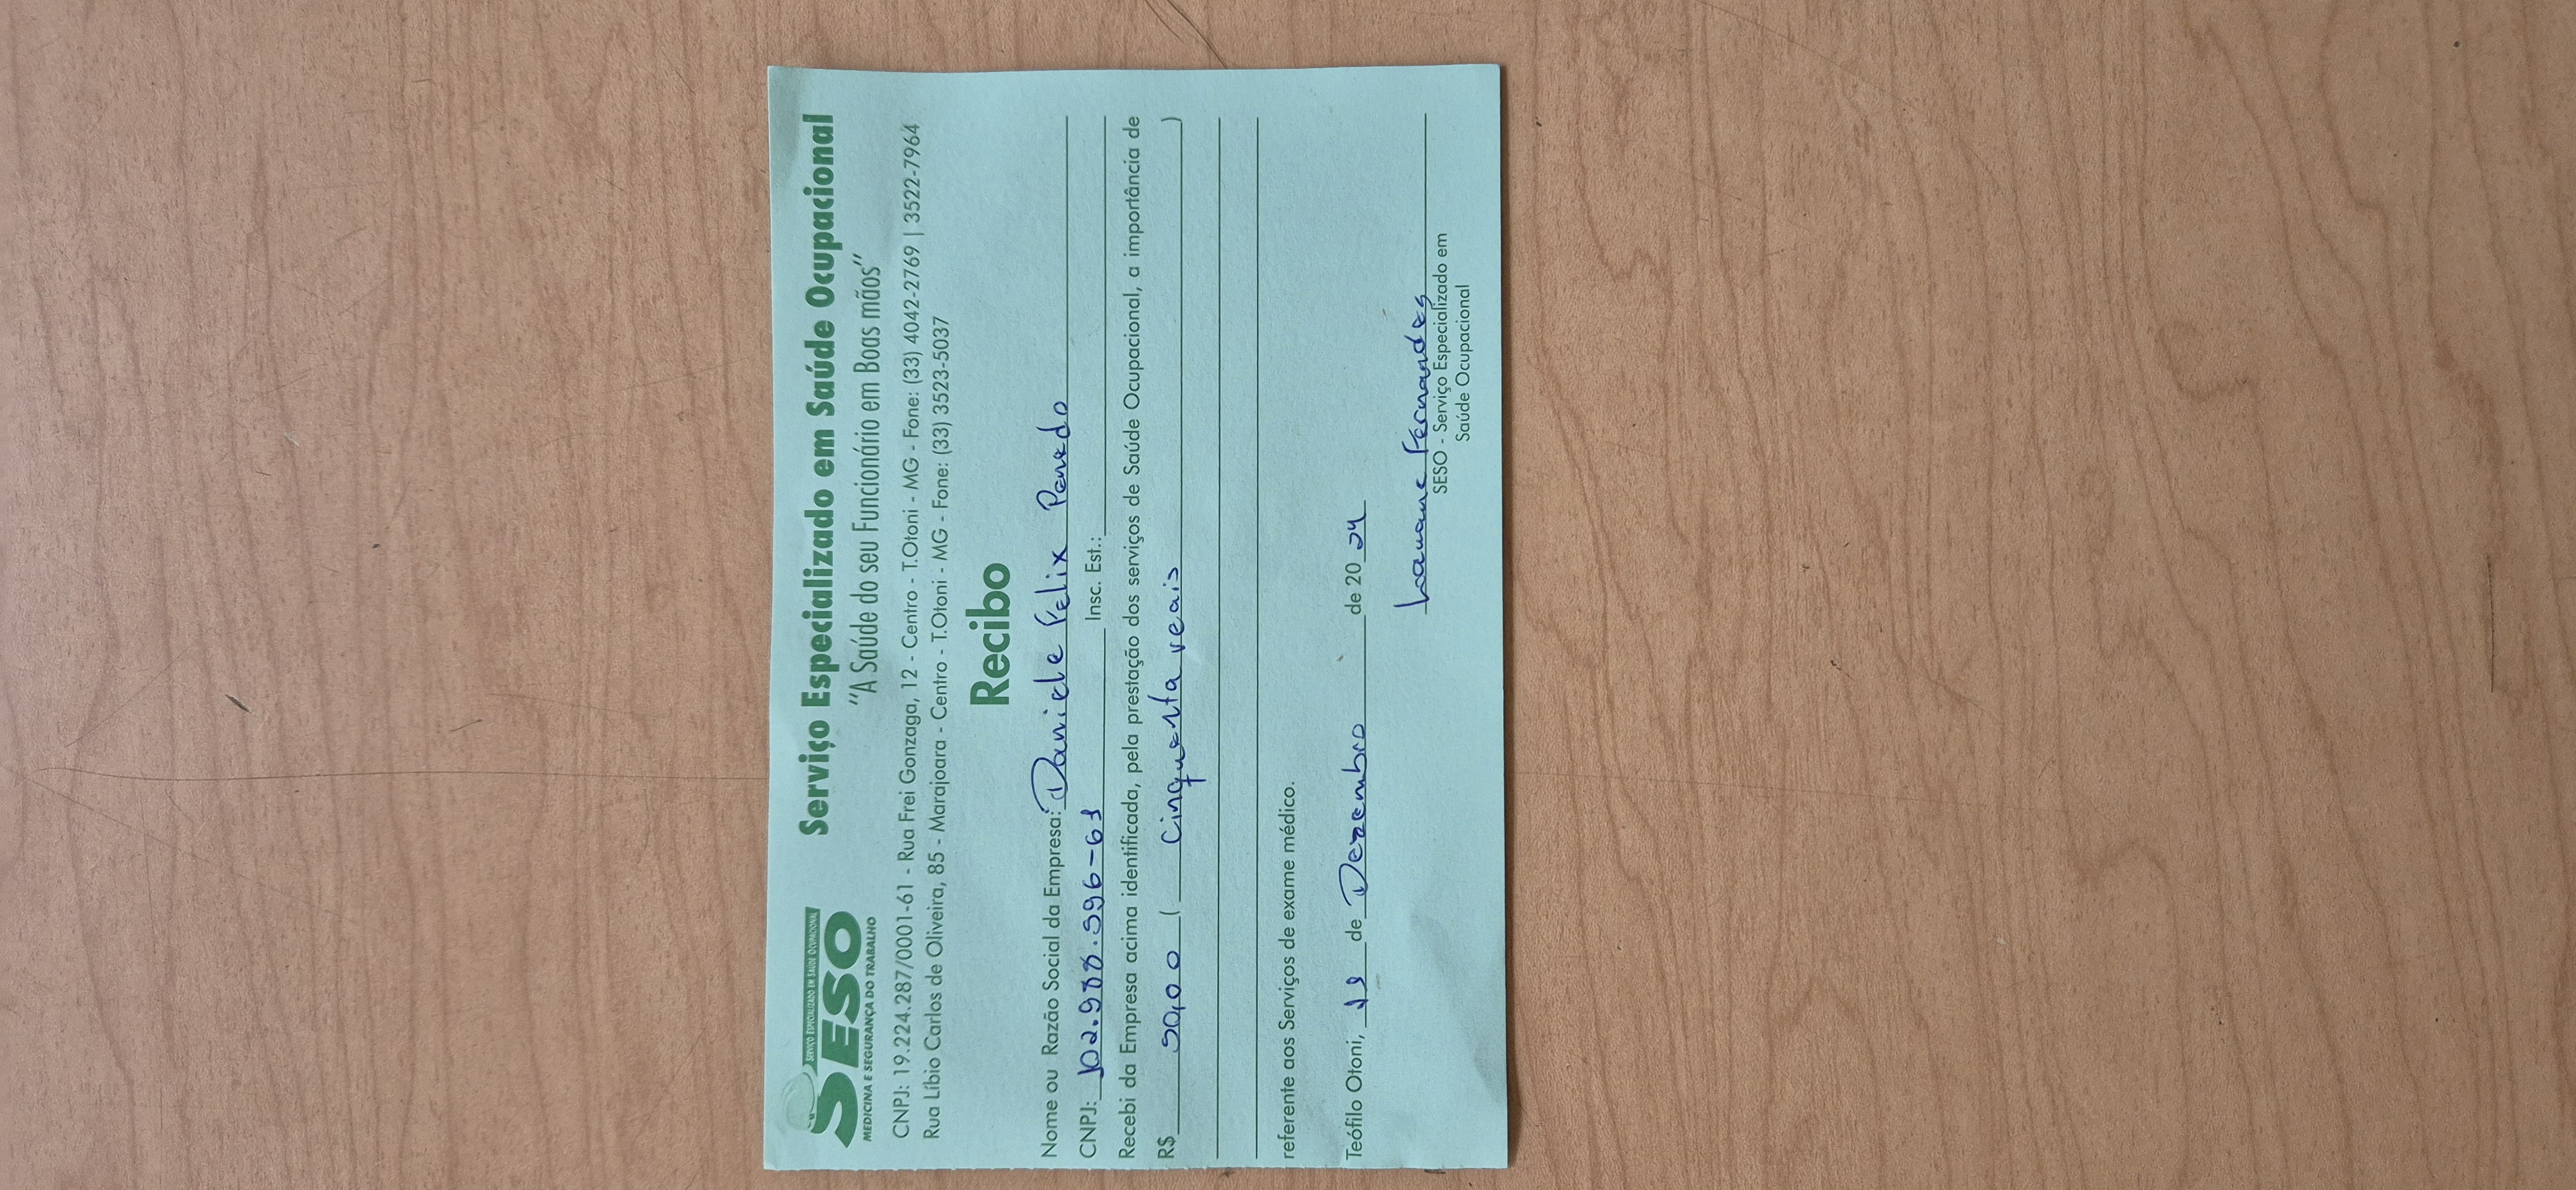 SERVIÇO ESPECIALIZADO EM SAÚDE OCUPACIONAL
SESO
MEDICINA E SEGURANÇA DO TRABALHO
Serviço Especializado em Saúde Ocupacional
"A Saúde do seu Funcionário em Boas mãos"
CNPJ: 19.224.287/0001-61 - Rua Frei Gonzaga, 12 - Centro - T.Otoni - MG - Fone: (33) 4042-2769 | 3522-7964
Rua Líbio Carlos de Oliveira, 85 - Marajoara - Centro - T.Otoni - MG - Fone: (33) 3523-5037
Recibo
Nome ou Razão Social da Empresa: Daniele Felix Penedo
CNPJ: 102.988.596-61 Insc. Est.:
Recebi da Empresa acima identificada, pela prestação dos serviços de Saúde Ocupacional, a importância de
R$ 50,00 ( Cinquenta reais )
referente aos Serviços de exame médico.
Teófilo Otoni, de Dezembro de 20 24
Fernandes
SESO - Serviço Especializado em
Saúde Ocupacional